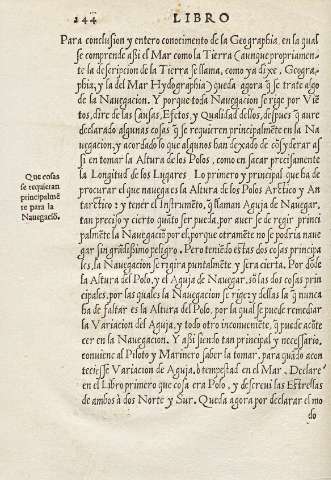 244 LIBRO
Para conclusion y entero conocimento de la Geographia, en la qual
se comprende assi el Mar como la Tierra (aunque propriamen-
te la descripcion de la Tierra se llama, como ya dixe, Geogra-
phia, y la del Mar Hydographia) queda agora q̃ se trate algo
de la Navegacion. Y porque toda Navegacion se rige por Viẽ
tos, dire de las Causas, Efctos, y Qualidad dellos, despues q̃ aure
declarado algunas cosas q̃ se requieren principalmẽte en la Na
uegacion, y acordado lo que algunos han dexado de cõsyderar as
si en tomar la Altura de los Polos, como en sacar precisamente
la Longitud de los Lugares Lo primero y principal que ha
de procurar el que nauega es la Altura de los Polos Arctico y An
tarctico: y tener el Instrumẽto, q̃ llaman Aguja de Nauegar,
tan preciso y cierto quãto ser pueda, por auer se de regir princi
palmẽte la Navegaciõ por el, porque otramẽte no se podria naue
gar sin grãdissimo peligro. Pero teniẽdo estas dos cosas principa
les, la Navegacion se rigira puntalmẽte y sera cierta. Por dõde
la Altura del Polo, y el Aguja de Nauegar, sõ las dos cosas prin
cipales, por las quales la Navegacion se rige: y dellas la q̃ nunca
ha de faltar es la Altura del Polo, por la qual se puede remediar
la Variacion del Aguja, y todo otro inconueniẽte, q̃ puede acõte
cer en la Navegacion. Y assi siendo tan principal y necessario,
conuiene al Piloto y Marinero saber la tomar, para quãdo acon
teciesse Variacion de Aguja, ò tempestad en el Mar. Declare
en el Libro primero que cosa era Polo, y descreui las Estrellas
de ambos à dos Norte y Sur. Queda agora por declarar el mo
do
Que cosas
se requieran
principalmẽ
te para la
Navegaciõ.